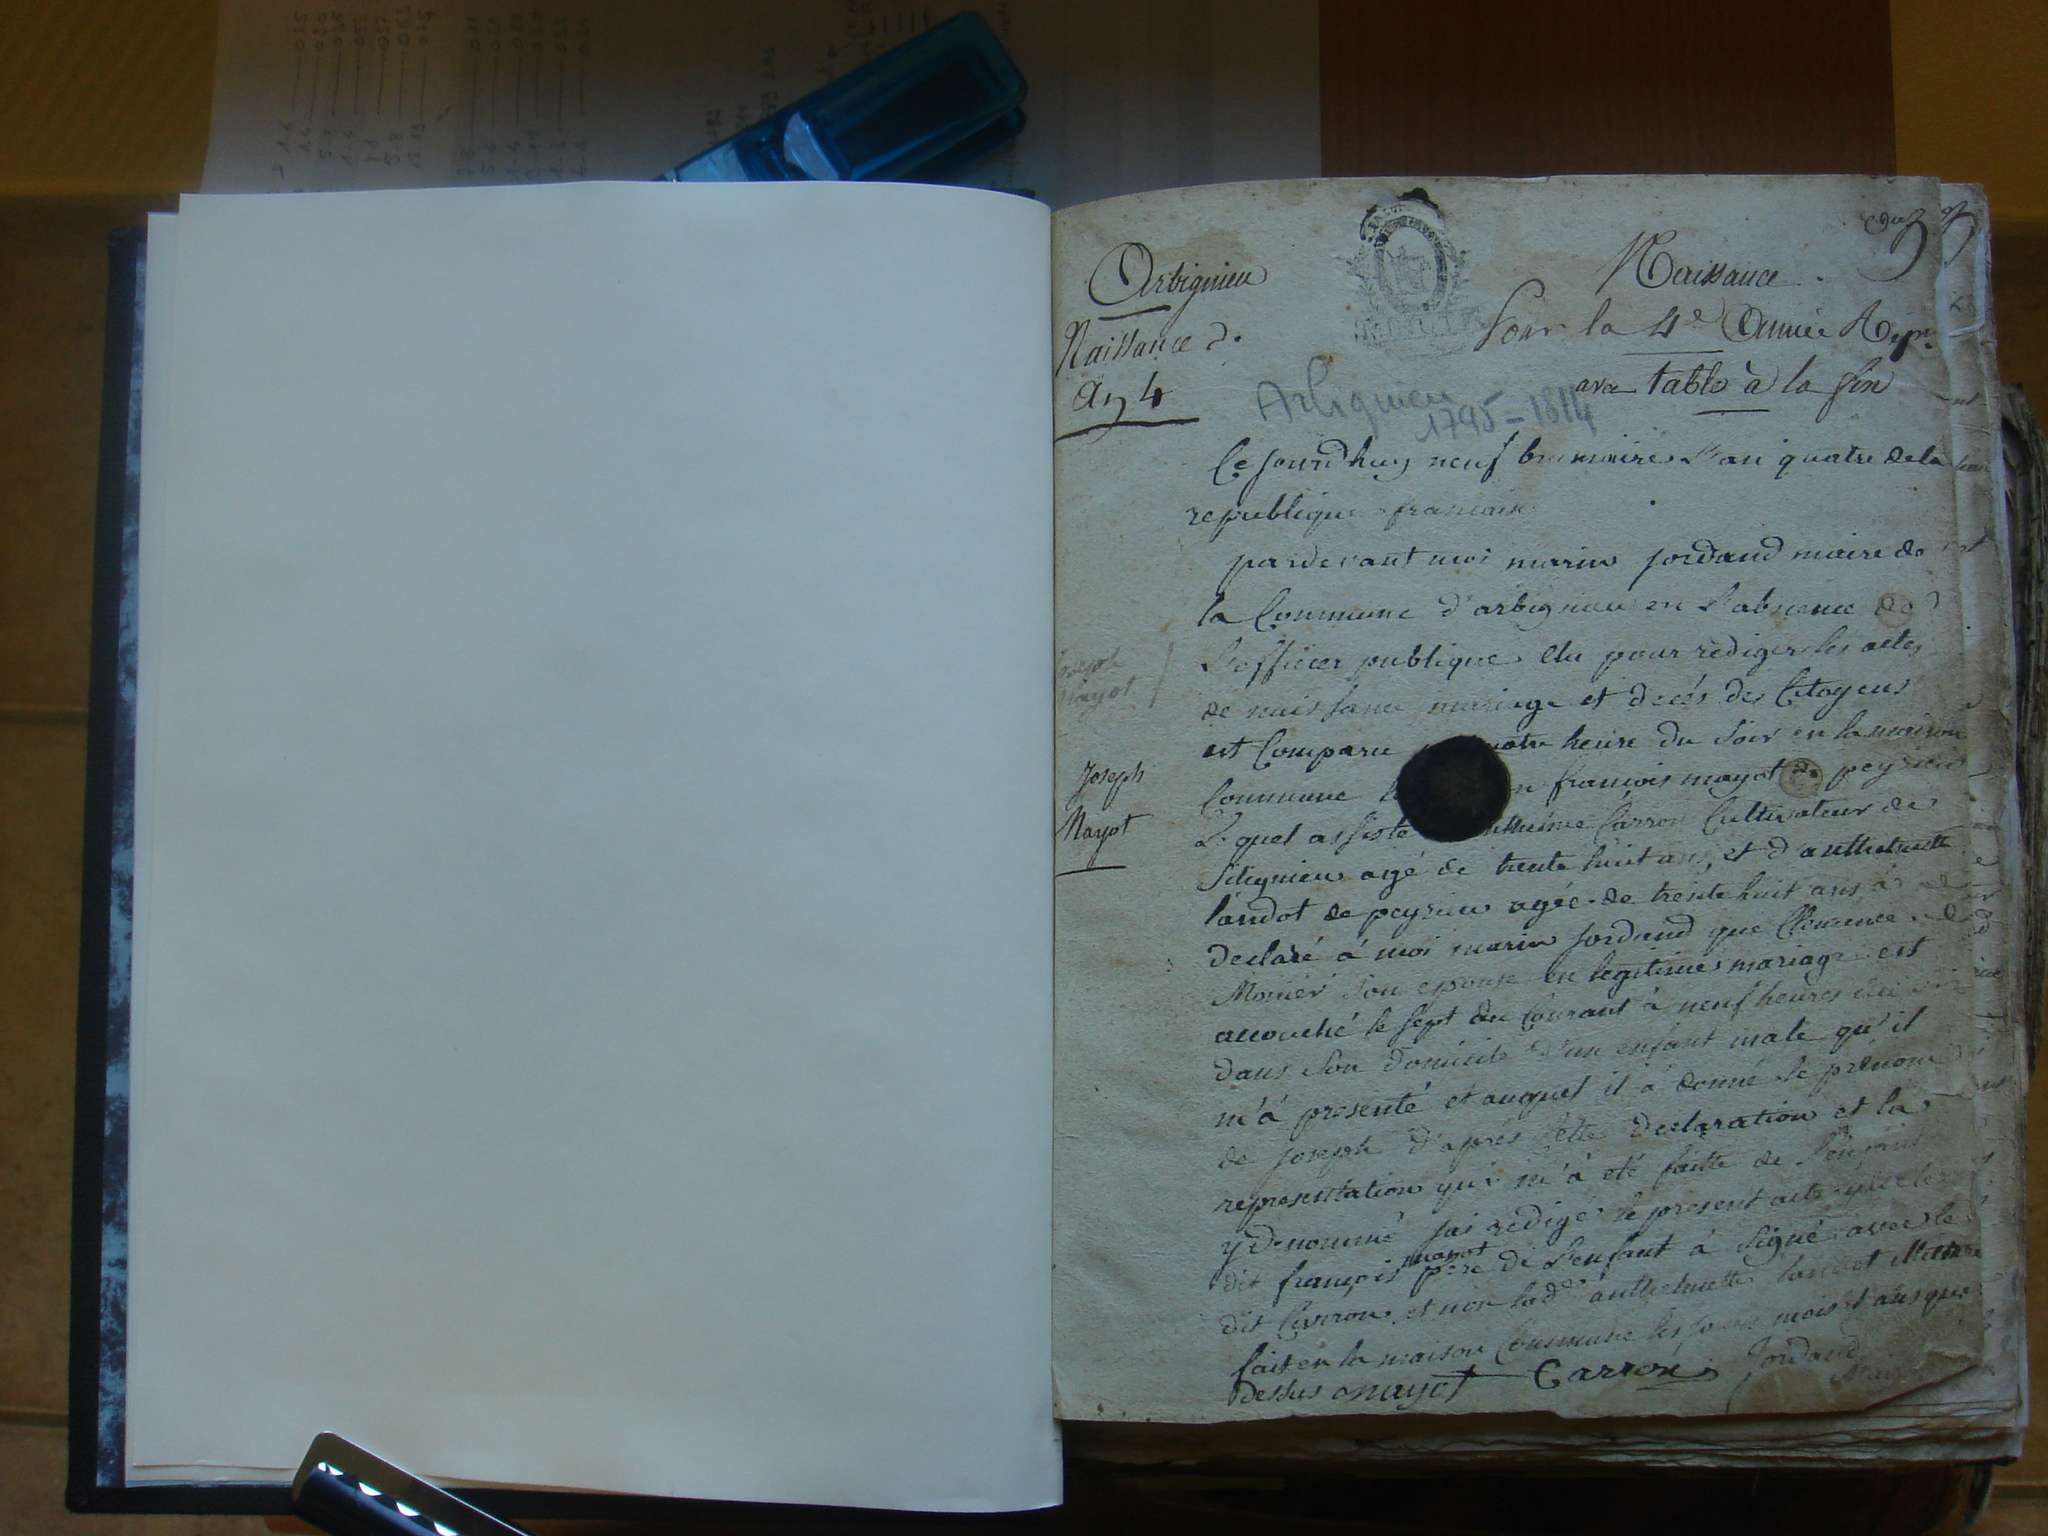 Arbignieu
Naissance d.
An 4
Naissance
Pour la 4e Année Rep.
avec table à la fin
Arbignieu
1795-1814
Ce jourdhuy neuf brumaire l'an quatre de la
republique francoise
pardevant moi marin jordand maire de
la Commune d'arbignieu en l'absence de
L'officier publique elu pour rediger les actes
de naissance mariage et decés des Citoyens
est Comparu heure du soir en la maison
Commune francois mayot de peyrieu
Le quel assisté Carron Cultivateur de
agé de trente huit ans, et d'anthelmette
landot de peyrieu agée de trente huit ans à
declaré à moi marin jordand que Clemence
Monier son epouse en legitime mariage est
accouché le sept du Courant à neuf heures du
dans son domicile d'un enfant male qu'il
m'à presenté et auquel il à donné le prénom
de joseph d'après cette declaration et la
representation qui m'à eté faitte de l'enfant
y denommé jai redigé le present acte que le
dit françois mayot père de l'enfant à signé avec le
dit Carron et non lad. anthelmette landot
fait en la maison Commune les jours mois et ans que
dessus mayot Carron jordand
Joseph
Mayot
Joseph
Mayot